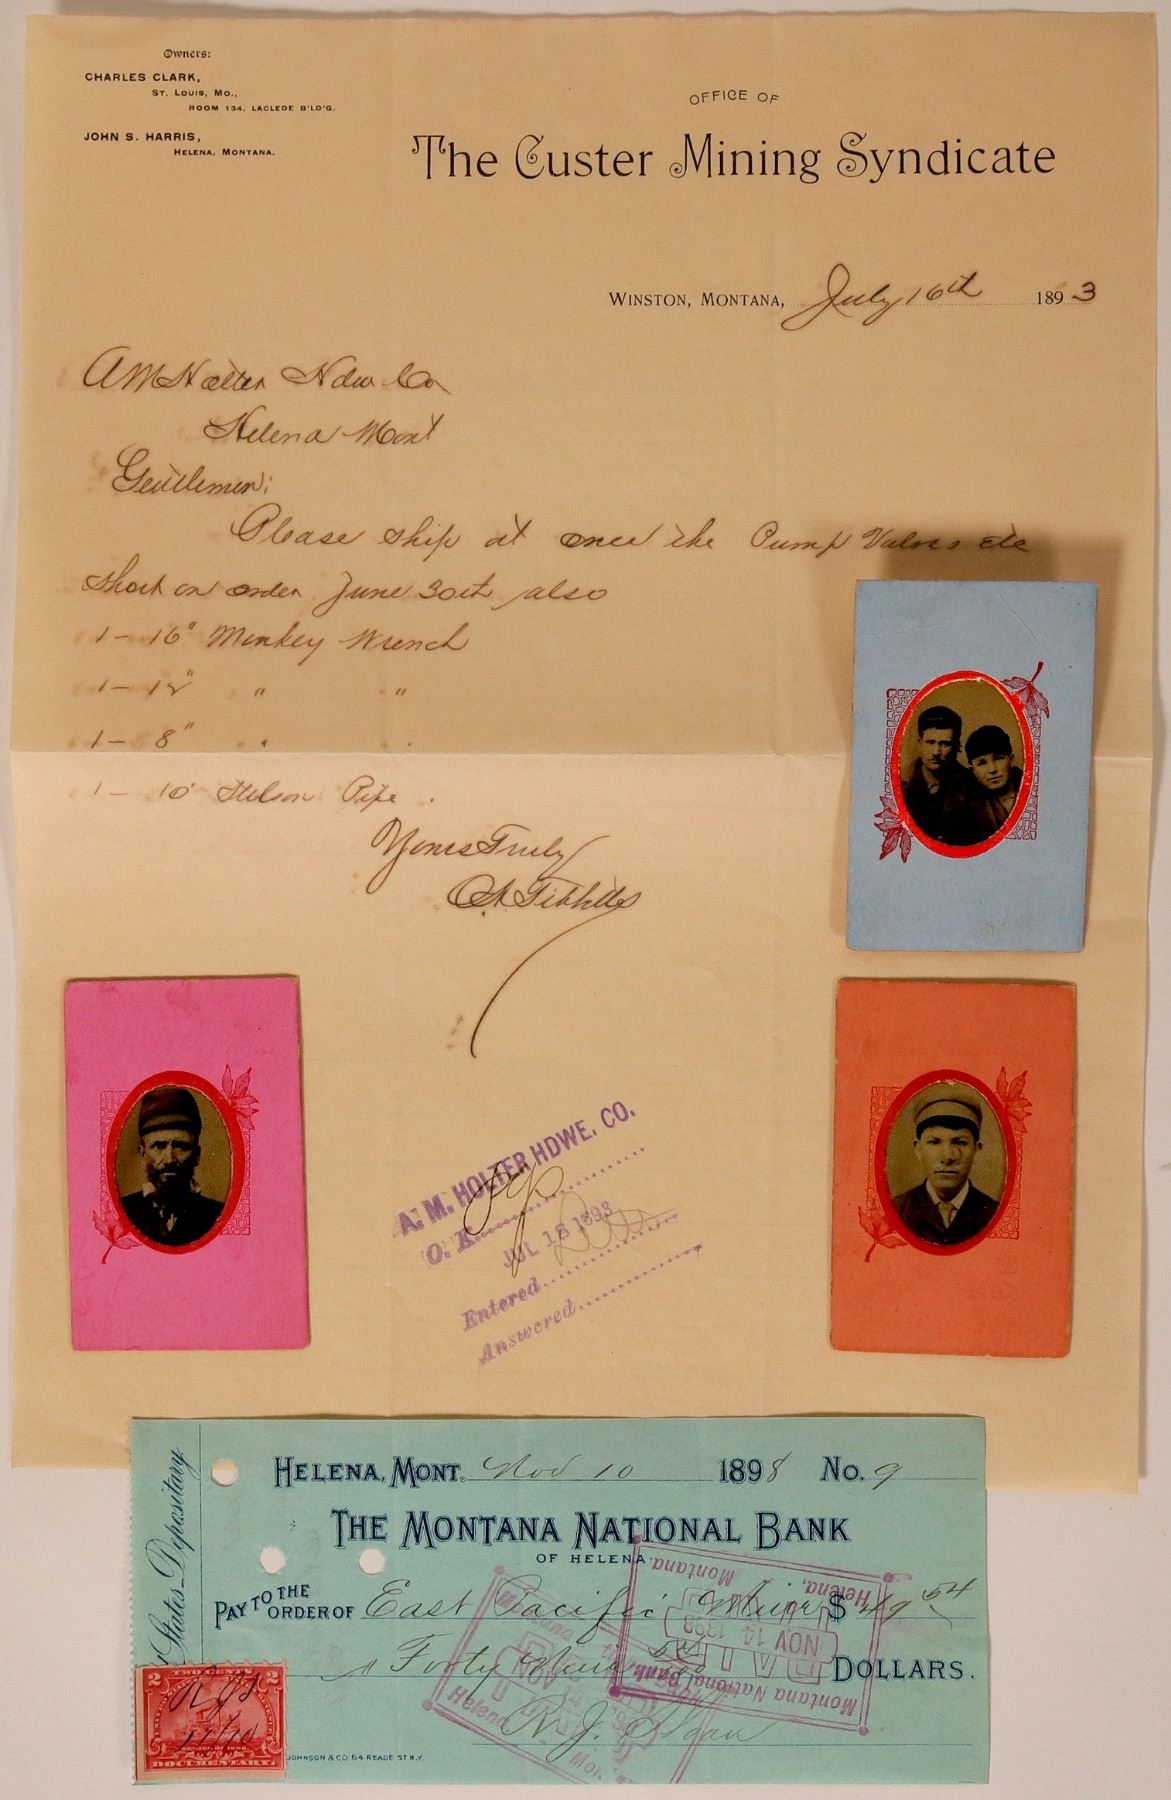 Owners:
CHARLES CLARK,
ST. LOUIS, MO.,
ROOM 134, LACLEDE B'LD'G.
JOHN S. HARRIS,
HELENA, MONTANA.
OFFICE OF
The Custer Mining Syndicate
WINSTON, MONTANA, July 16th 1893
A M Holter Hdw Co
Helena Mont
Gentlemen;
Please ship at once the Pump Valves etc
short on order June 30th also
1 - 16" Monkey Wrench
1 - 12" " "
1 - 8" " "
1 - 10" Stelson Pipe "
Yours Truly
Tibbitts
A. M. HOLTER HDWE. CO.
O. K.
JUL 18 1893
Entered
Answered
States Depositary
HELENA, MONT. Nov 10 1898 No. 9
THE MONTANA NATIONAL BANK
OF HELENA
PAY TO THE ORDER OF East Pacific $ 49 54
Forty Nine DOLLARS.
R. J. Sloan
Montana National Bank
PAID
NOV 14 1898
Helena, Montana.
2 TWO CENTS 2
DOCUMENTARY
R J S
11/10
JOHNSON & CO. 64 READE ST N.Y.